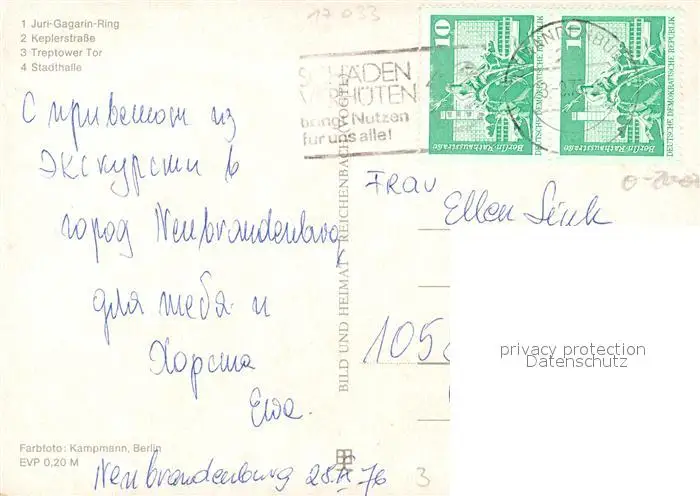 1 Juri-Gagarin-Ring
2 Keplerstraße
3 Treptower Tor
4 Stadthalle
17 033
SCHÄDEN
VERHÜTEN
bringt Nutzen
für uns alle!
10
DEUTSCHE DEMOKRATISCHE REPUBLIK
Berlin-Rathausstraße
10
DEUTSCHE DEMOKRATISCHE REPUBLIK
Berlin-Rathausstraße
С приветом из
экскурсти в
город Neubrandenburg
для тебя и
Хорста
Ewa.
Neubrandenburg 76
BILD UND HEIMAT REICHENBACH (VOGTL)
FRAU
Ellen
105
privacy protection
Datenschutz
Farbfoto: Kampmann, Berlin
EVP 0,20 M
3